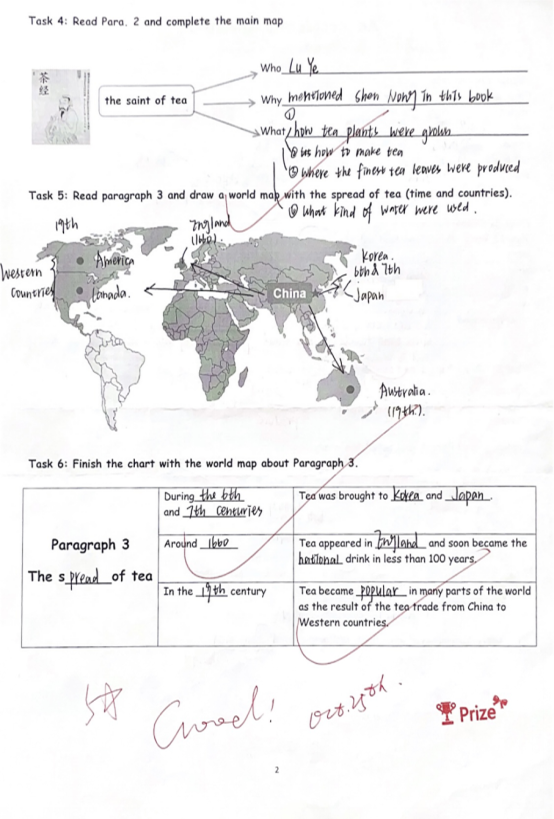 Task 4: Read Para. 2 and complete the main map
茶经
the saint of tea
Who Lu Ye
Why mentioned Shen Nong in this book
What ① how tea plants were grown
② how to make tea
③ where the finest tea leaves were produced
④ What kind of water were used.
Task 5: Read paragraph 3 and draw a world map with the spread of tea (time and countries).
19th
England
(1660)
America
Western
Countries
Canada.
Korea.
6th & 7th
Japan
China
Australia.
(19th).
Task 6: Finish the chart with the world map about Paragraph 3.
Paragraph 3
The spread of tea
During the 6th
and 7th centuries
Tea was brought to Korea and Japan.
Around 1660
Tea appeared in England and soon became the
national drink in less than 100 years.
In the 19th century
Tea became popular in many parts of the world
as the result of the tea trade from China to
Western countries.
Good! Oct. 25th.
Prize
2